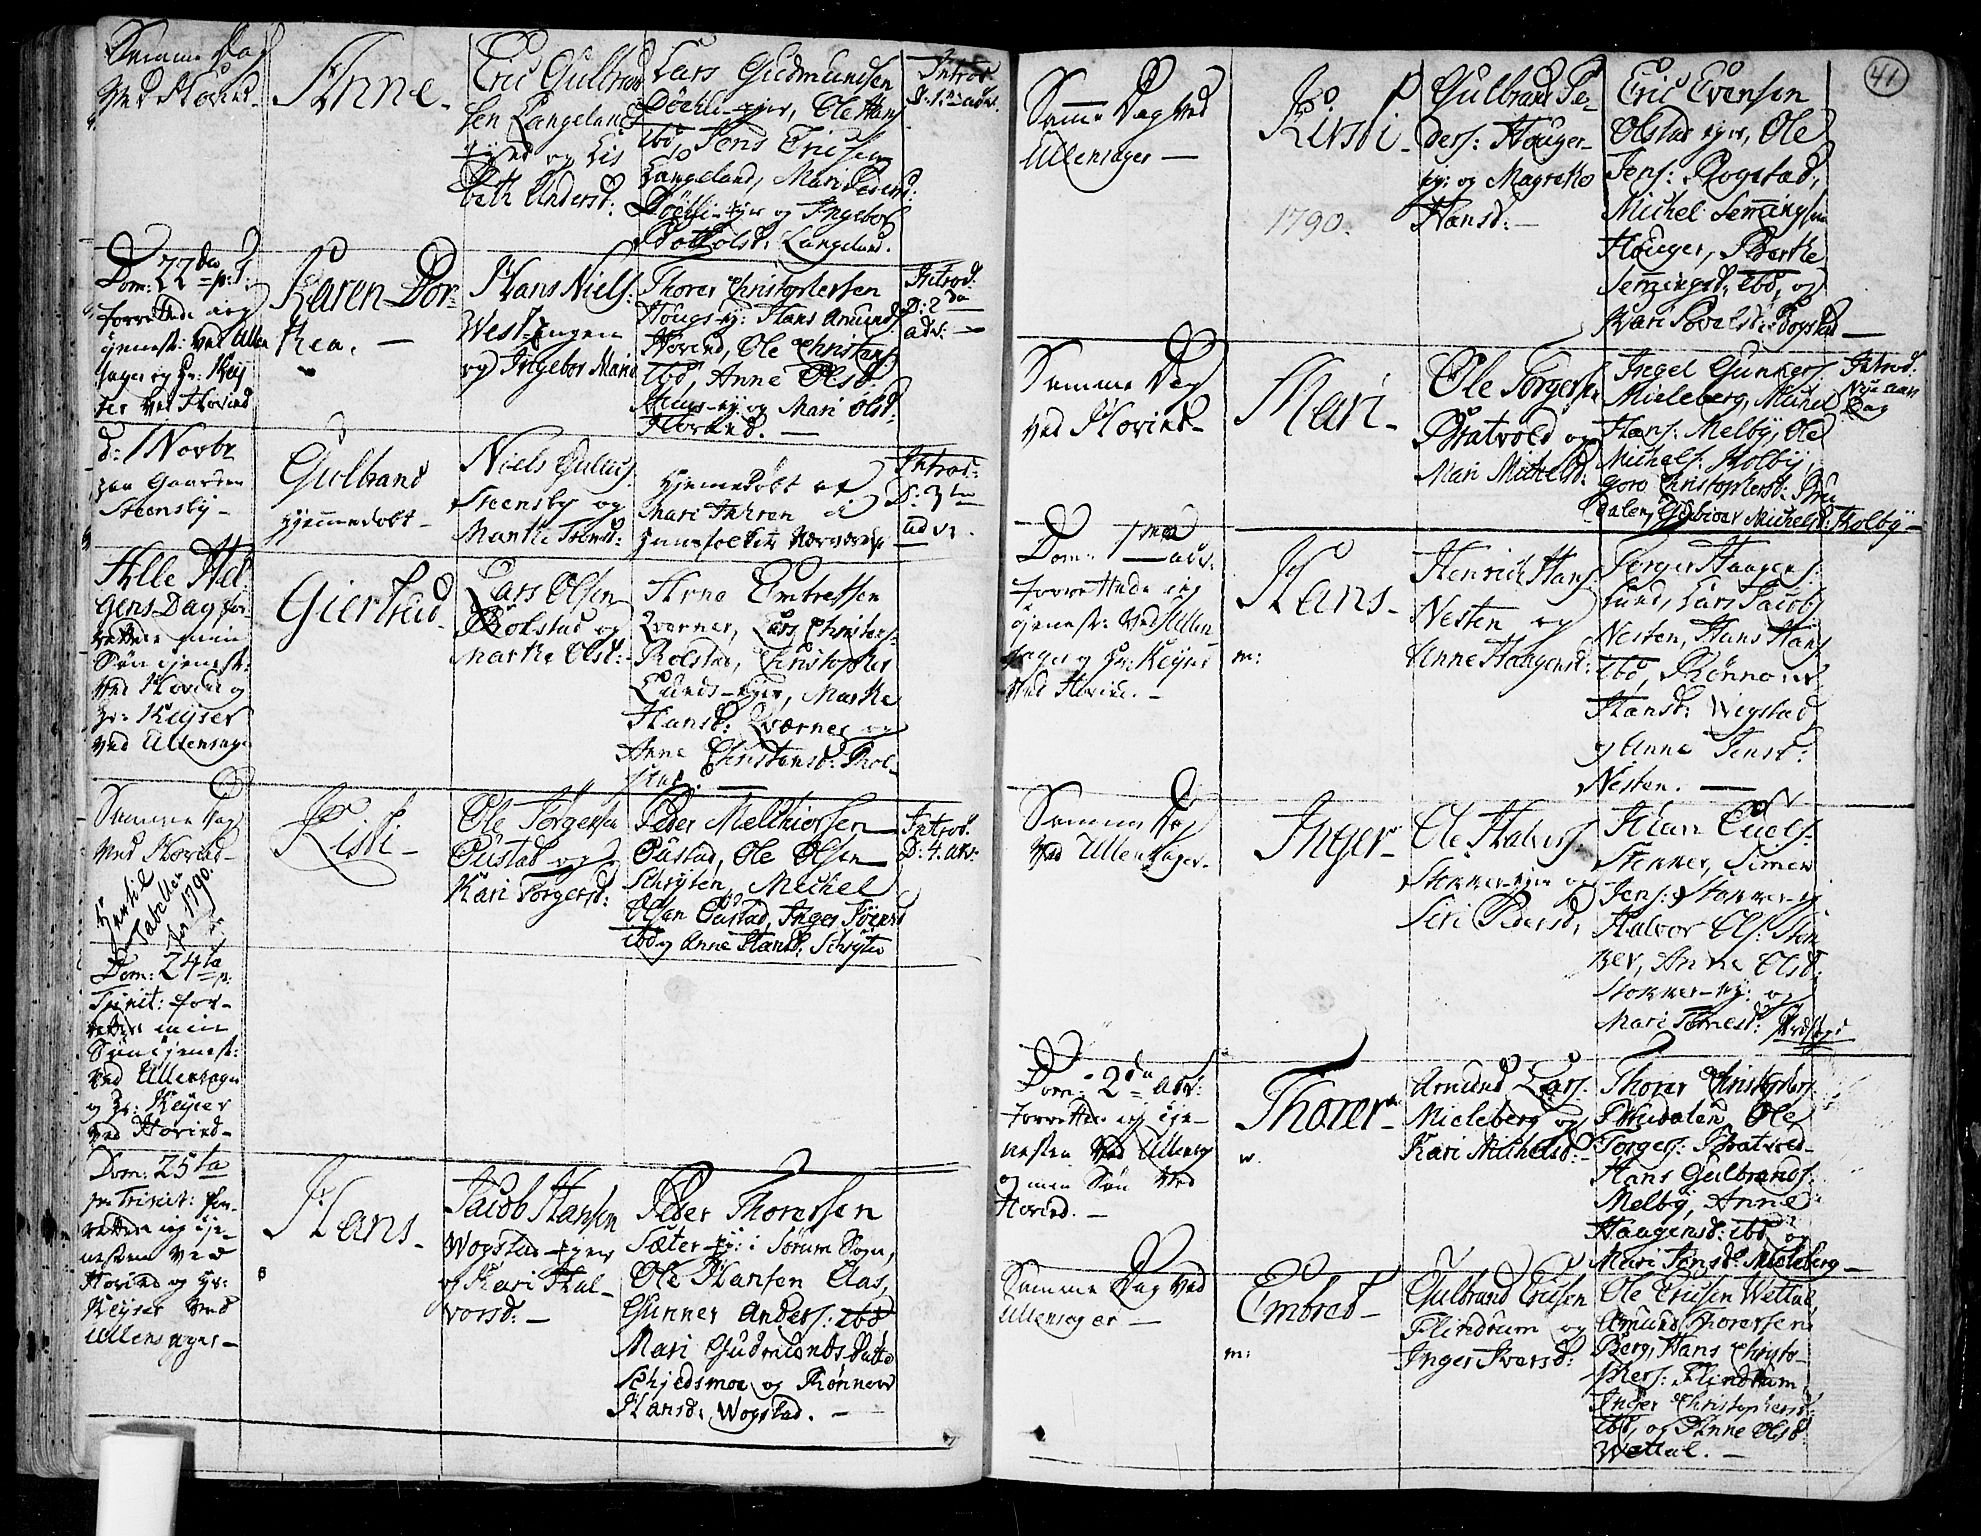 Samme Dag
ved Hovind -
Anne -
Eric Gulbrand
sen Langeland
ejer og Lis
beth Andersd:
Lars Gudmundsen
Døhli-ejer, Ole Hans
ibd, Jens Ericsen
Langeland, Mari Peders:
Døhli-ejer og Ingebor
Botholsd: Langeland.
Introd:
D: 1ma adv:
Dom: 22den p: T:
forrettede jeg
tjenest: ved Ullen
sager og Hr: Key
ser ved Hovind
Karen Dor-
thea. -
Hans Niels:
West-engen
og Ingebor Marie
Thorer Christophersen
Hougs-ej: Hans Amunds
Hovind, Ole Christans
ibd, Anne Olsd:
Huus-ej: og Mari Olsd:
Hovind. -
Introd:
D: 2da
adv: -
d: 1 Novbr
paa Gaarden
Steensby -
Gulbrand
hjemmedøbt -
Niels
Steensby og
Marthe Iversd:
hjemmedøbt af
Mari
Introd:
D: 3tia
adv.
Alle Hel
gens Dag for-
rettede min
Søn tjenest:
ved Hovind og
Hr: Keyser
ved Ullensager
Giertrud -
Lars Olsen
Rolstad og
Marthe Olsd: -
Arne Embretsen
Kværner, Lars Christens:
Rolstad, Christopher
Lunds-ejer, Marthe
Hansd: Kværner og
Anne Christensd: Rol-
stad. -
Samme Dag
ved Hovind -
Hertil
Tabellen
for 1790.
Kisti -
Ole Torgersen
Oustad og
Kari Torgersd:
Peder Melchiorsen
Oustad, Ole Olsen
Schrytén, Michel
Olsen Oustad, Inger Jöensd
ibd og Anne Hansd: Schryten
Introd:
D: 4. adv:
Dom: 24ta p:
Trinit: for-
rettede min
Søn tjenest:
ved Ullensager
og Hr: Keyser
ved Hovind -
Dom: 25ta
p: Trinit: for-
rettede jeg tje-
nesten ved
Hovind og Hr:
Keyser ved
Ullensager -
Hans -
Jacob Hansen
Wogstad-ejer
og Kari Hal-
vorsd: -
Peder Thorersen
Sæter-ej: i Sørum Sogn,
Ole Hansen Aas,
Gunner Anders: ibd
Mari Gudmundsdatter
Schjedsmoe og Rønnow
Hansd: Wogstad. -
41
Samme Dag ved
Ullensager -
Kirsti -
1790.
Gulbrand Pe-
ders: Houger-
ej: og Magrethe
Hansd: -
Eric Evensen
Olstad ejer, Ole
Jens: Rogstad,
Michel Semmingsen
Houger, Berthe
Semmingsd, ibd, og
Kari Povelsd: Rogstad -
Samme Dag
ved Hovind -
Mari -
Ole Torgersen
Bratvold og
Mari Michelsd:
Ingel Gunners
Mieleberg, Michel
Hans: Melby, Ole
Michels: Kolby,
Goro Christophersd: Bru
dalen, Gubior Michelsd: Kolby -
Introd:
Nye aars
Dag
Dom: 1ma adv:
forrettede jeg
tjenest: ved Ullen
sager og Hr: Keyser
ved Hovind. -
Hans -
m:
Henrich Hans
Nesten og
Anne Haagensd:
Torger Haagens:
Lund, Lars Jacobs
Nesten, Hans Hans
ibd, Rønnow
Hansd: Wigstad
og Anne Jensd:
Nesten. -
Samme Dag
ved Ullensager -
Inger -
Ole Halvors:
Stokker-ejer og
Siri Pedersd:
Johan Ouels:
Stenner, Simen
Jens: Stokker-ej
Halvor Ols: Sten
ner, Anne Olsd:
Stokker-ej: og
Mari Tomesd:
Dom: 2da Adv:
forrettede jeg tje-
nesten ved Ullensag:
og min Søn ved
Hovind. -
Thorer -
Amund Lars:
Mieleberg og
Kari Michelsd: -
Thorer Christophers:
Brudalen, Ole
Torgers: Bratvold
Hans Gulbrands:
Melby, Anne
Haagensd: ibd og
Mari Jensd: Mieleberg -
Samme Dag ved
Ullensager -
Embret -
m:
Gulbrand Ericsen
Flindrum og
Inger Iversd:
Ole Ericsen Wettal,
Amund Thorersen
Berg, Hans Christo-
phers: Flindrum,
Inger Christophersd:
ibd, og Anne Olsd:
Wettal. -